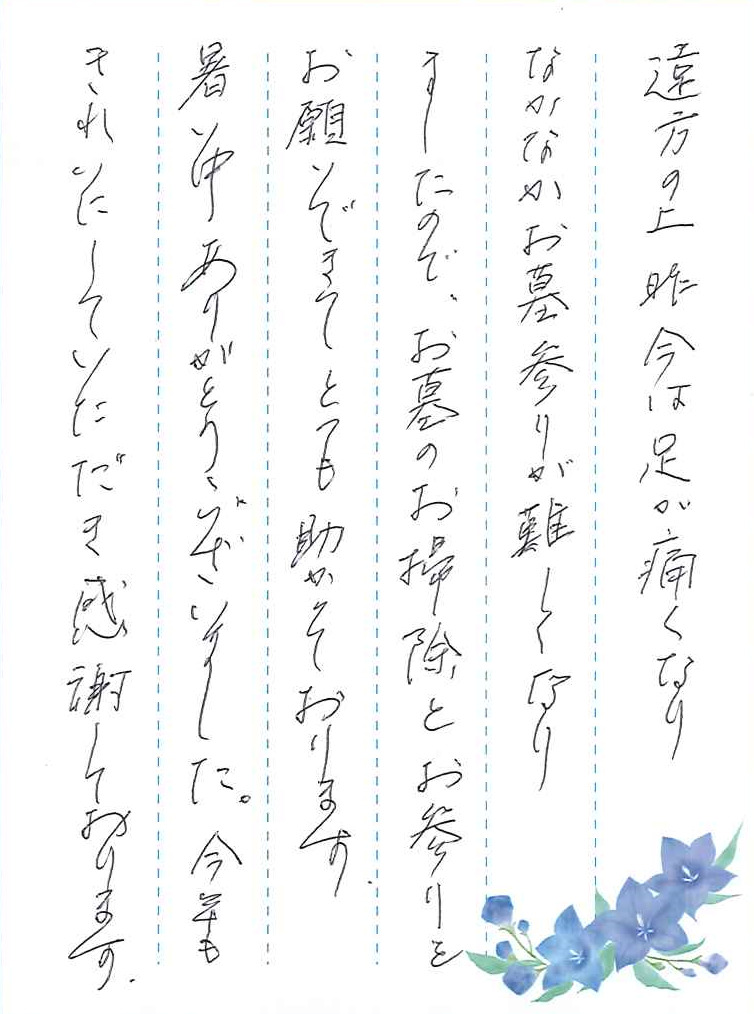 遠方の上 昨今は足が痛くなり
なかなかお墓参りが難しくなり
ましたので、お墓のお掃除とお参りを
お願いできてとっても助かっております.
暑い中ありがとうございました。今年も
きれいにしていただき感謝しております.